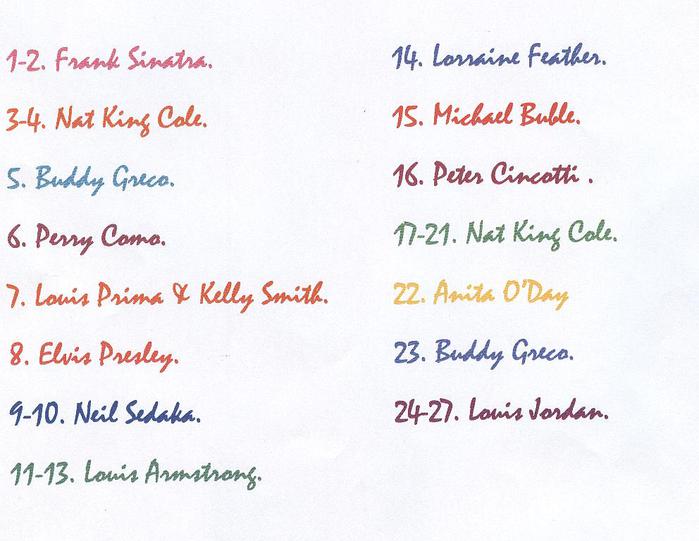 1-2. Frank Sinatra.
3-4. Nat King Cole.
5. Buddy Greco.
6. Perry Como.
7. Louis Prima & Kelly Smith.
8. Elvis Presley.
9-10. Neil Sedaka.
11-13. Louis Armstrong.
14. Lorraine Feather.
15. Michael Buble.
16. Peter Cincotti .
17-21. Nat King Cole.
22. Anita O'Day
23. Buddy Greco.
24-27. Louis Jordan.